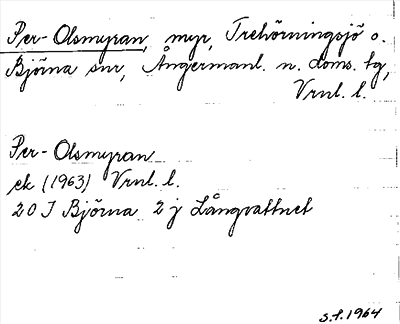 Per-Olsmyran, myr, Trehörningsjö o.
Björna snr, Ångermanl. n. doms. tg,
Vrnl. l.
Per-Olsmyran
ek (1963) Vrnl. l.
20 J Björna 2 j Långvattnet
S.f. 1964